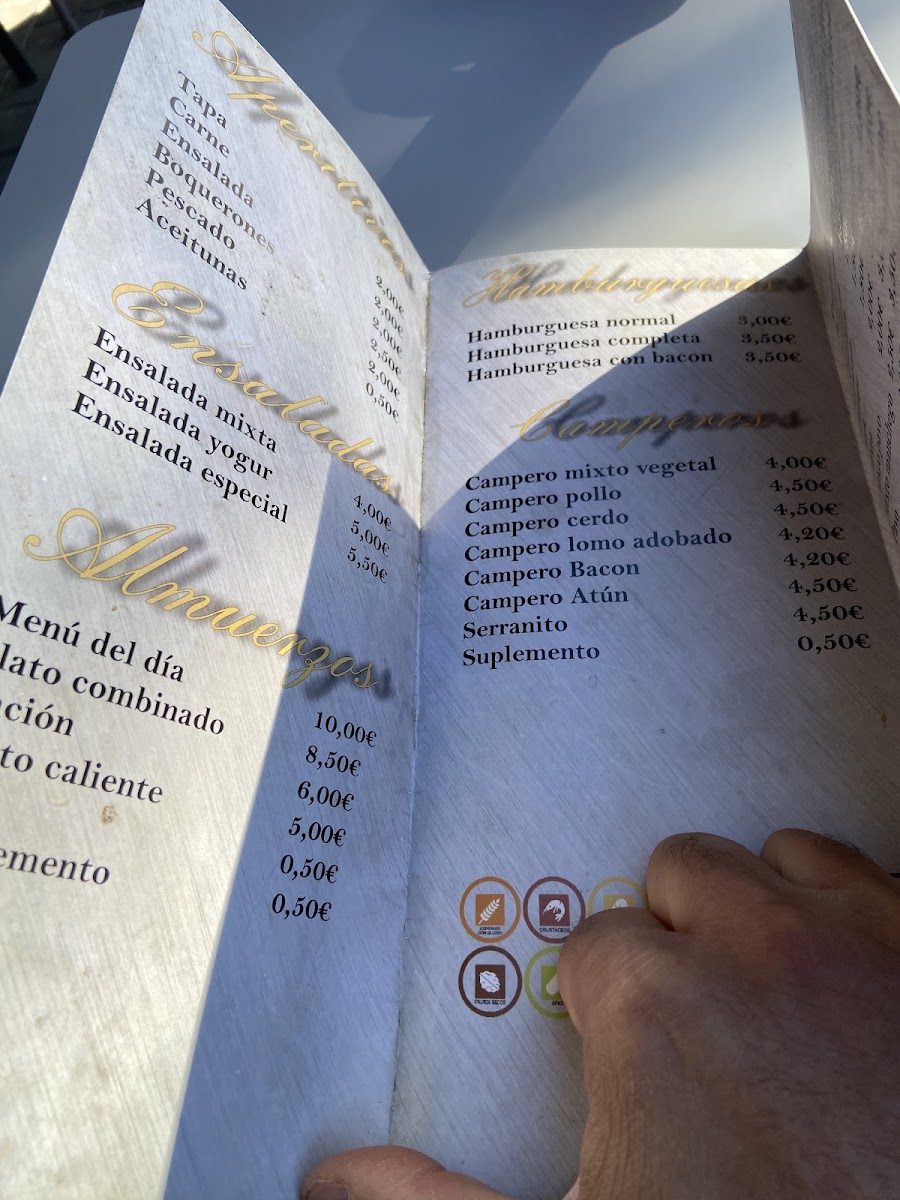 Aperitivos
Tapa 2,00€
Carne 2,00€
Ensalada 2,00€
Boquerones 2,50€
Pescado 2,00€
Aceitunas 0,50€
Ensaladas
Ensalada mixta 4,00€
Ensalada yogur 5,00€
Ensalada especial 5,50€
Almuerzos
Menú del día 10,00€
lato combinado 8,50€
ción 6,00€
to caliente 5,00€
0,50€
emento 0,50€
Hamburguesas
Hamburguesa normal 3,00€
Hamburguesa completa 3,50€
Hamburguesa con bacon 3,50€
Camperos
Campero mixto vegetal 4,00€
Campero pollo 4,50€
Campero cerdo 4,50€
Campero lomo adobado 4,20€
Campero Bacon 4,20€
Campero Atún 4,50€
Serranito 4,50€
Suplemento 0,50€
CEREALES
CON GLUTEN
CRUSTACEOS
FRUTOS SECOS